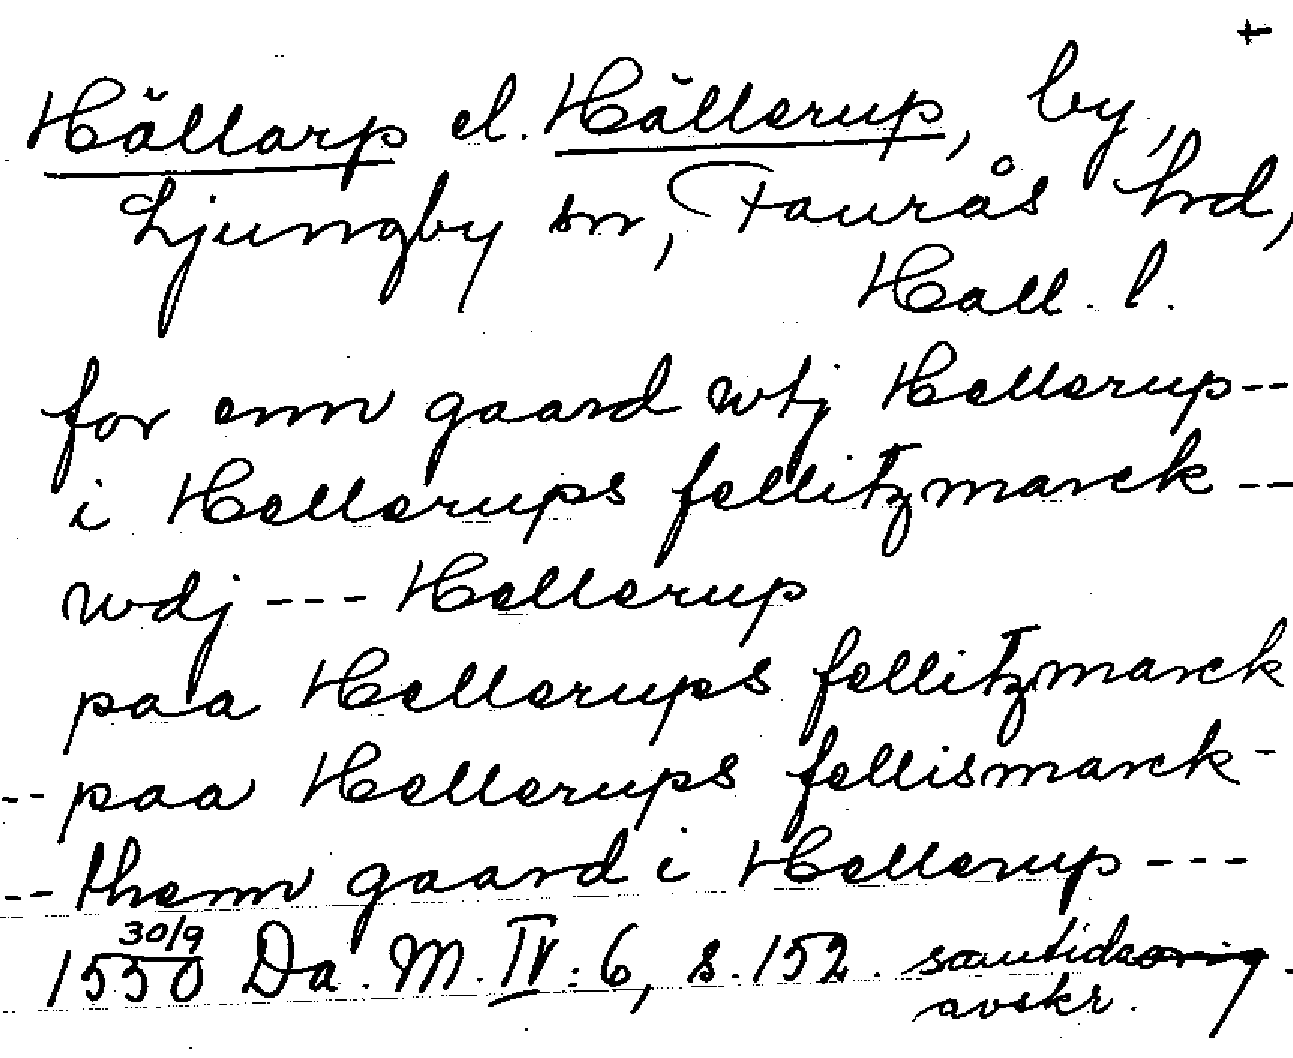 +
Hällarp el. Hällerup, by,
Ljungby sn, Faurås hrd,
Hall. l.
for enn gaard wtj Hellerup--
i Hellerups fellitzmarck--
wdj --- Hellerup
paa Hellerups fellitzmarck
-- paa Hellerups fellismarck-
-- thenn gaard i Hellerup ---
30/9
1550 Da. M. IV: 6, s. 152. samtida
avskr.